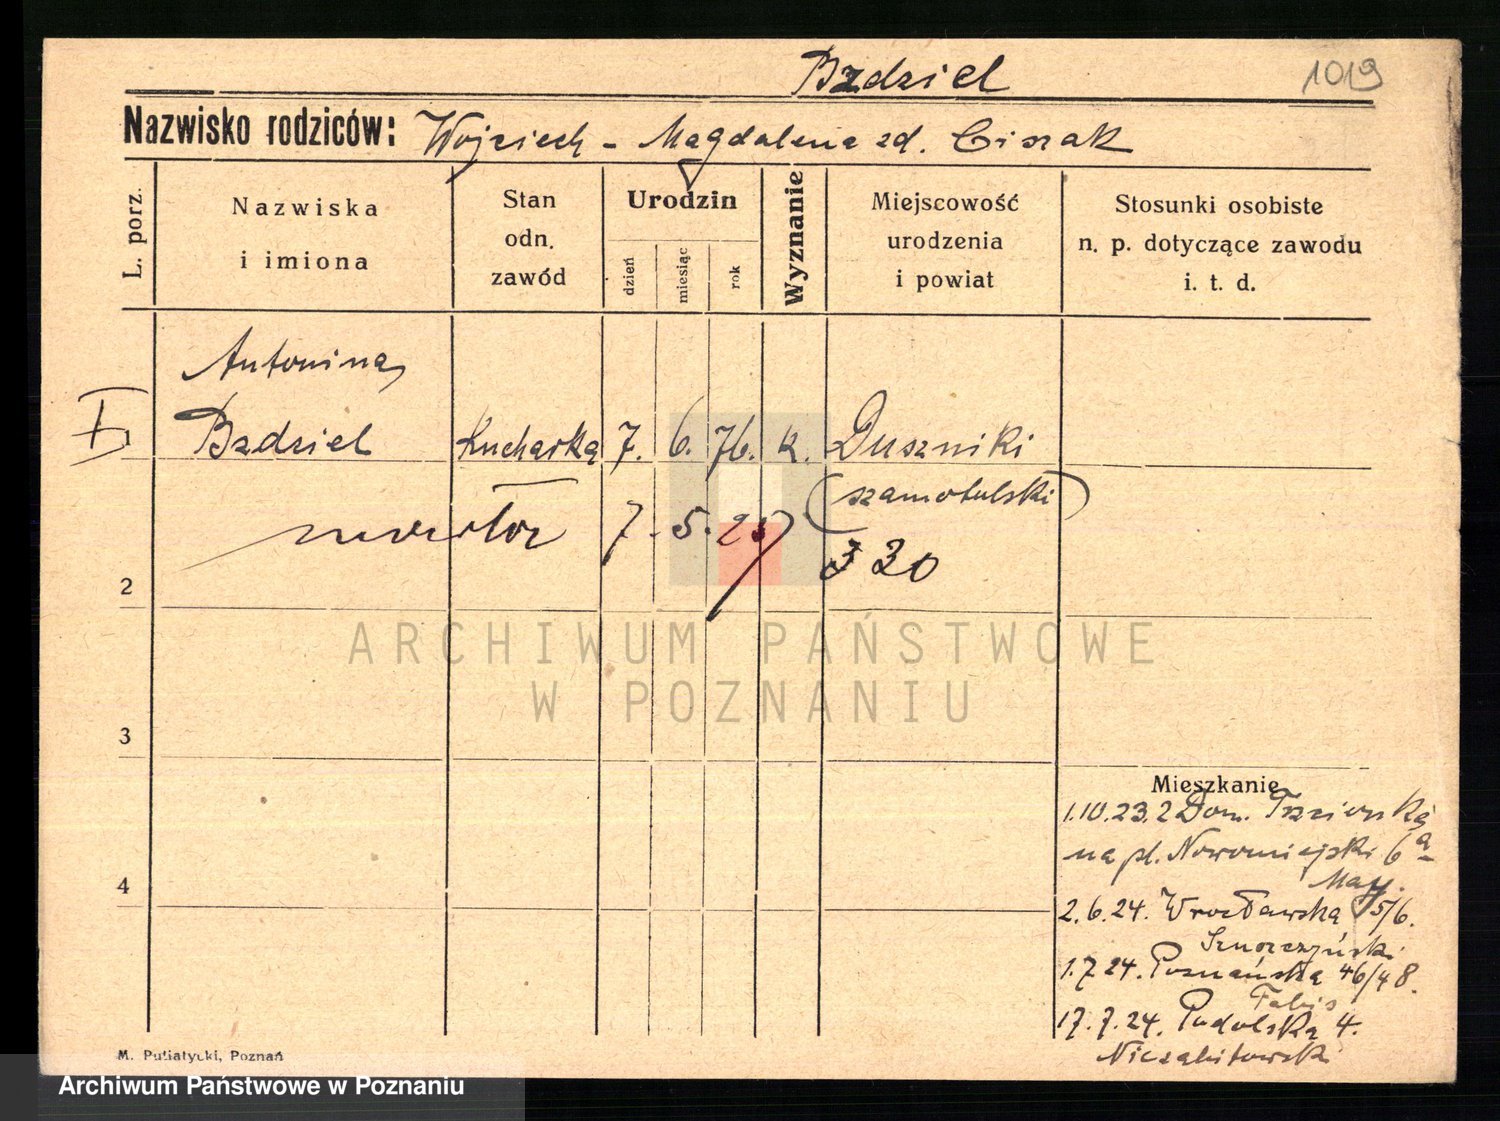 Bzdziel
1019
Nazwisko rodziców: Wojciech - Magdalena zd. Ciszak
L. porz.
Nazwiska
i imiona
Stan
odn.
zawód
Urodzin
dzień
miesiąc
rok
Wyznanie
Miejscowość
urodzenia
i powiat
Stosunki osobiste
n. p. dotyczące zawodu
i. t. d.
Antonina
Bzdziel Kucharka 7. 6. 76. k. Duszniki
(szamotulski)
7. 5. 25
J 20
2
3
4
Mieszkanie
1.10.23. z Dom.
na pl. Nowomiejski 6a
May.
2.6.24. Wrocławska 15/6.
1.7.24. Poznańska 46/48.
Fabis
17.7.24. Podolska 4.
Niezabitowski
M. Putiatycki, Poznań
ARCHIWUM PAŃSTWOWE
W POZNANIU
Archiwum Państwowe w Poznaniu